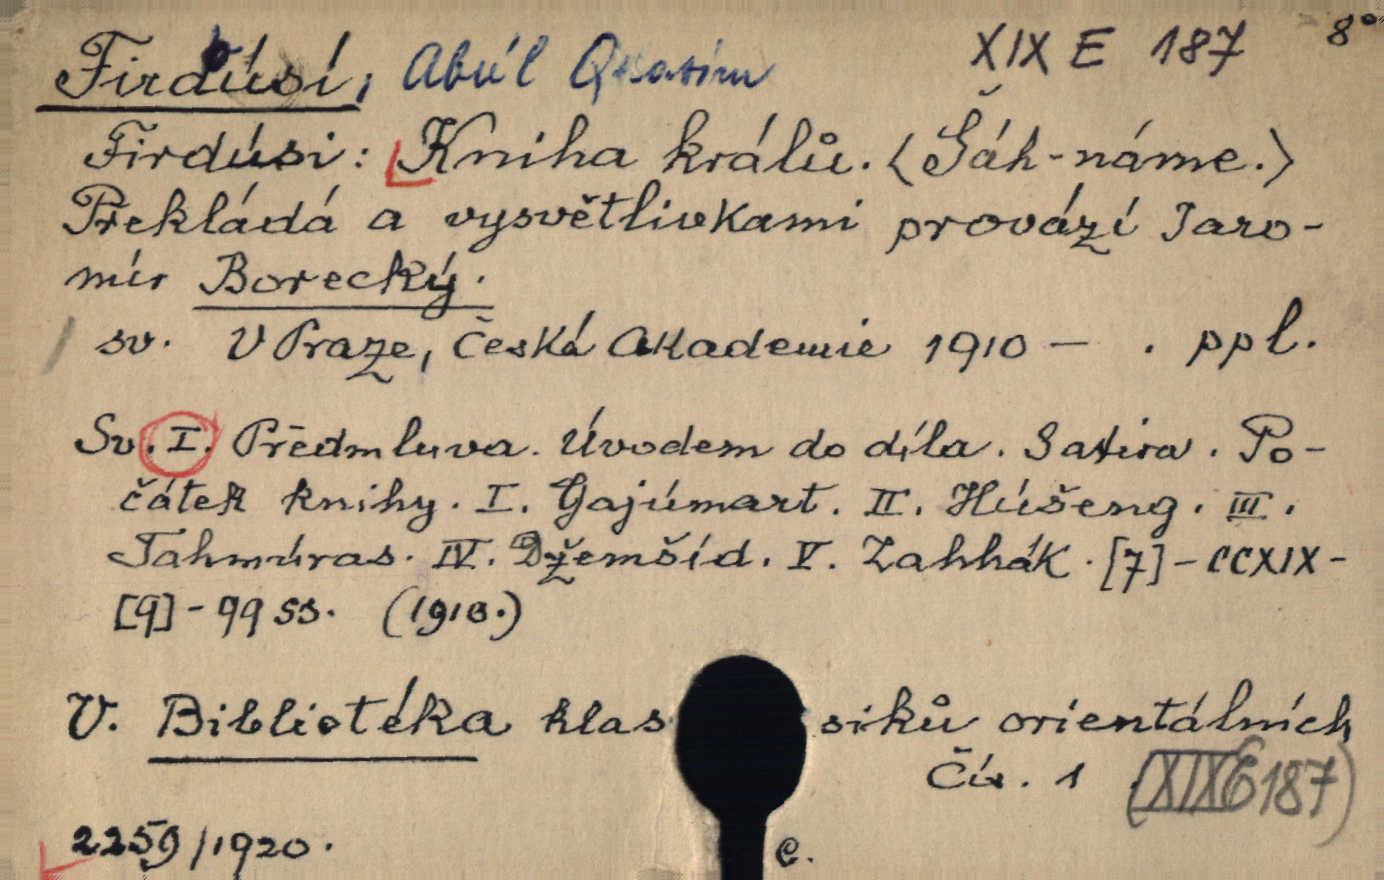 Firdúsí, Abú'l Qasim XIX E 187 8°
Firdúsi: Kniha králů. ⟨Šáh-náme.⟩
Prekládá a vysvětlivkami provází Jaro-
mír Borecký.
sv. V Praze, Česká Akademie 1910 — . ppl.
Sv. I. Předmluva. Úvodem do díla. Satira. Po-
čátek knihy. I. Gajúmart. II. Húšeng. III.
Tahmúras. IV. Džemšíd. V. Zahhák. [7] - CCXIX -
[9] - 99 ss. (1910.)
V. Bibliotéka klassiků orientálních
Čís. 1 . (XIX E 187)
2259/1920. C.